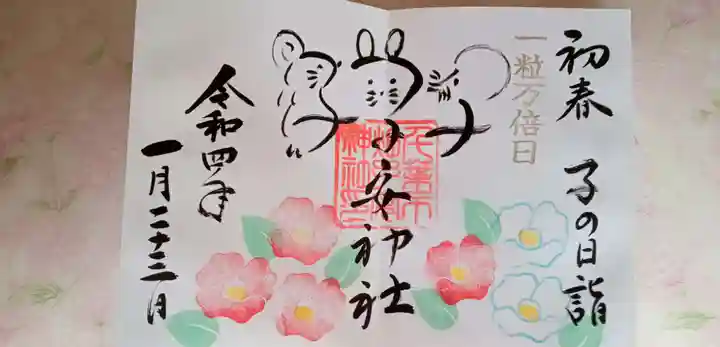 初春 子の日詣
一粒万倍日
子安神社
令和四年
一月二十三日